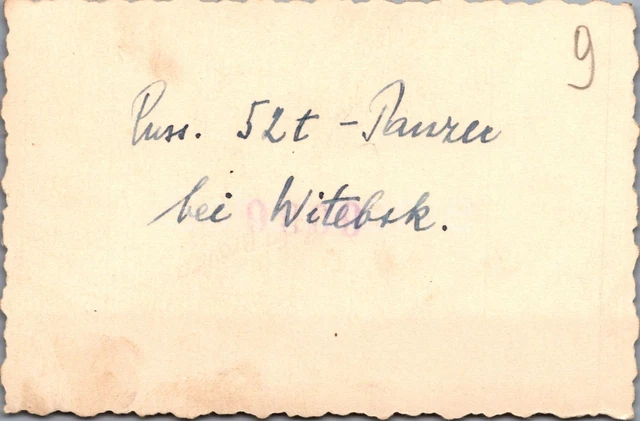 9
Russ. 52t - Panzer
bei Witebsk.